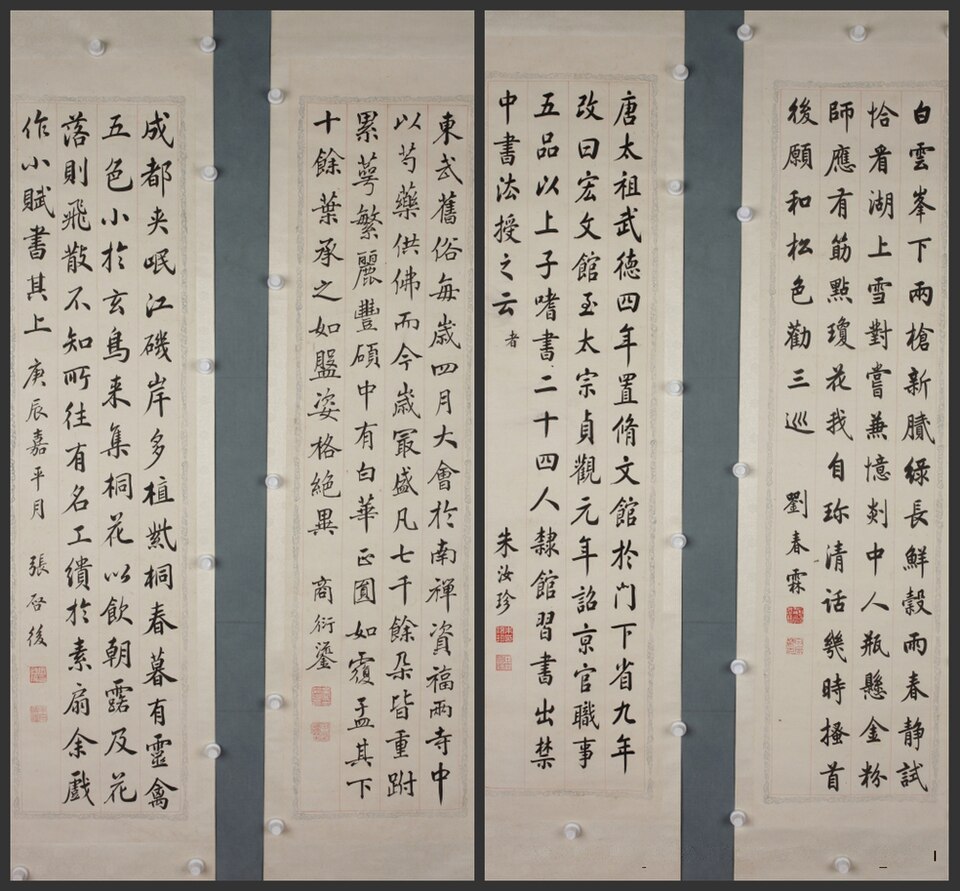 白雲峯下兩槍新膩綠長鮮穀雨春靜試
恰看湖上雪對嘗兼憶剡中人瓶懸金粉
師應有筋點瓊花我自珎清話幾時搔首
後願和松色勸三巡
劉春霖
唐太祖武德四年置脩文館於门下省九年
改曰宏文館至太宗貞觀元年詔京官職事
五品以上子嗜書二十四人隸館習書出禁
中書法授之云者
朱汝珍
東武舊俗每歲四月大會於南禪資福兩寺中
以芍藥供佛而今歲冣盛凡七千餘朶皆重跗
累萼繁麗豐碩中有白華正圓如覆盂其下
十餘葉承之如盤姿格絕異
商衍鎏
成都夾岷江磯岸多植紫桐春暮有靈禽
五色小於玄鳥来集桐花以飲朝露及花
落則飛散不知所往有名工繢於素扇余戲
作小賦書其上
庚辰嘉平月 張启後